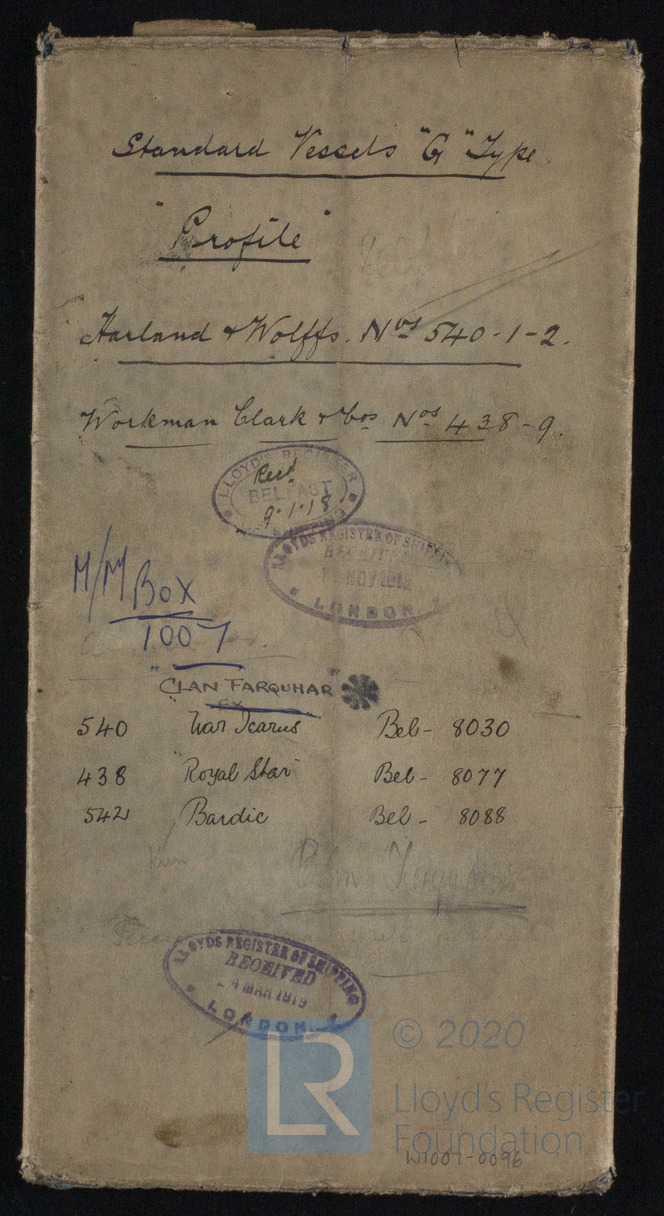 Standard Vessels "G" Type.
"Profile"
Harland & Wolffs. Nos 540-1-2.
Workman Clark & Cos Nos 438-9.
LLOYD'S REGISTER
Recd
BELFAST
9.1.18
LLOYDS REGISTER OF SHIPPING
RECEIVED
NOV 1918
LONDON
M/M Box
1007
"CLAN FARQUHAR"
EX
540 War Icarus Bel- 8030
438 "Royal Star" Bel- 8077
542 Bardic Bel- 8088
LLOYDS REGISTER OF SHIPPING
RECEIVED
- 4 MAR 1919
LONDON
LR
© 2020
Lloyd's Register
Foundation
W1007-0096